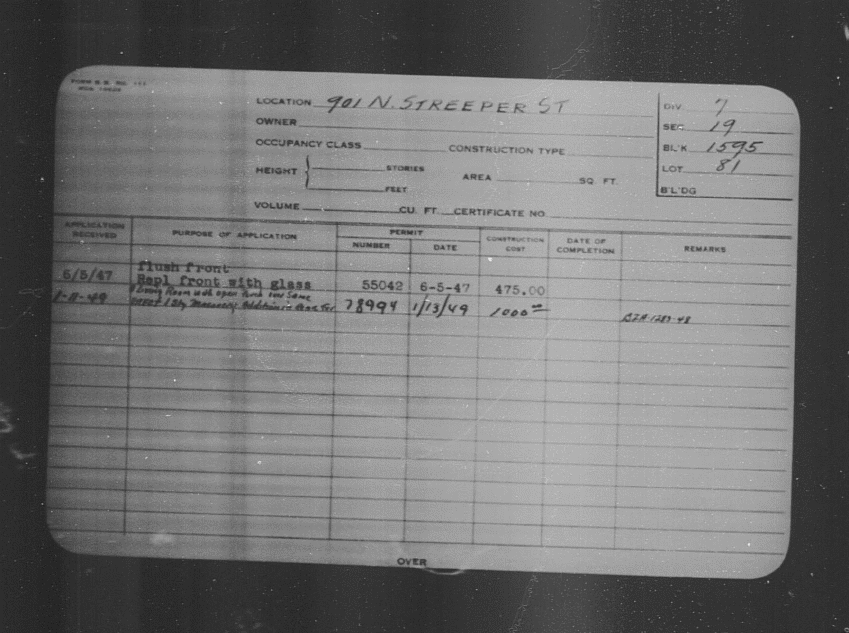 FORM B. B. NO.
LOCATION 901 N. STREEPER ST
DIV. 7
OWNER
SEC. 19
OCCUPANCY CLASS CONSTRUCTION TYPE
BL'K 1595
HEIGHT STORIES
AREA SQ. FT.
LOT 81
FEET
B'L'DG
VOLUME CU. FT. CERTIFICATE NO.
APPLICATION RECEIVED PURPOSE OF APPLICATION PERMIT NUMBER DATE CONSTRUCTION COST DATE OF COMPLETION REMARKS
flush front
6/5/47 Repl front with glass 55042 6-5-47 475.00
Living Room with open porch over same
1-11-49 Erect 1 Sty Masonry Addition in Rear For 78994 1/13/49 1000 00 BZA-1283-48
OVER